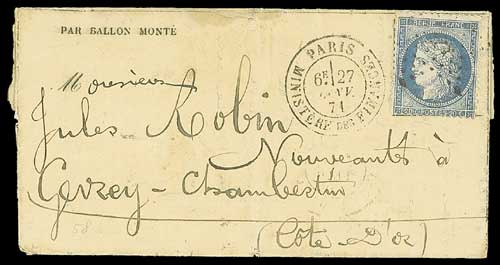 PAR BALLON MONTÉ
PARIS
6E 27
JANV.
71
MINISTÈRE DES FINANCES
REPUB. FRANC.
POSTES
Monsieur
Jules Robin
Nouveautés à
Gevrey-Chambertin
(Côte d'Or)
58